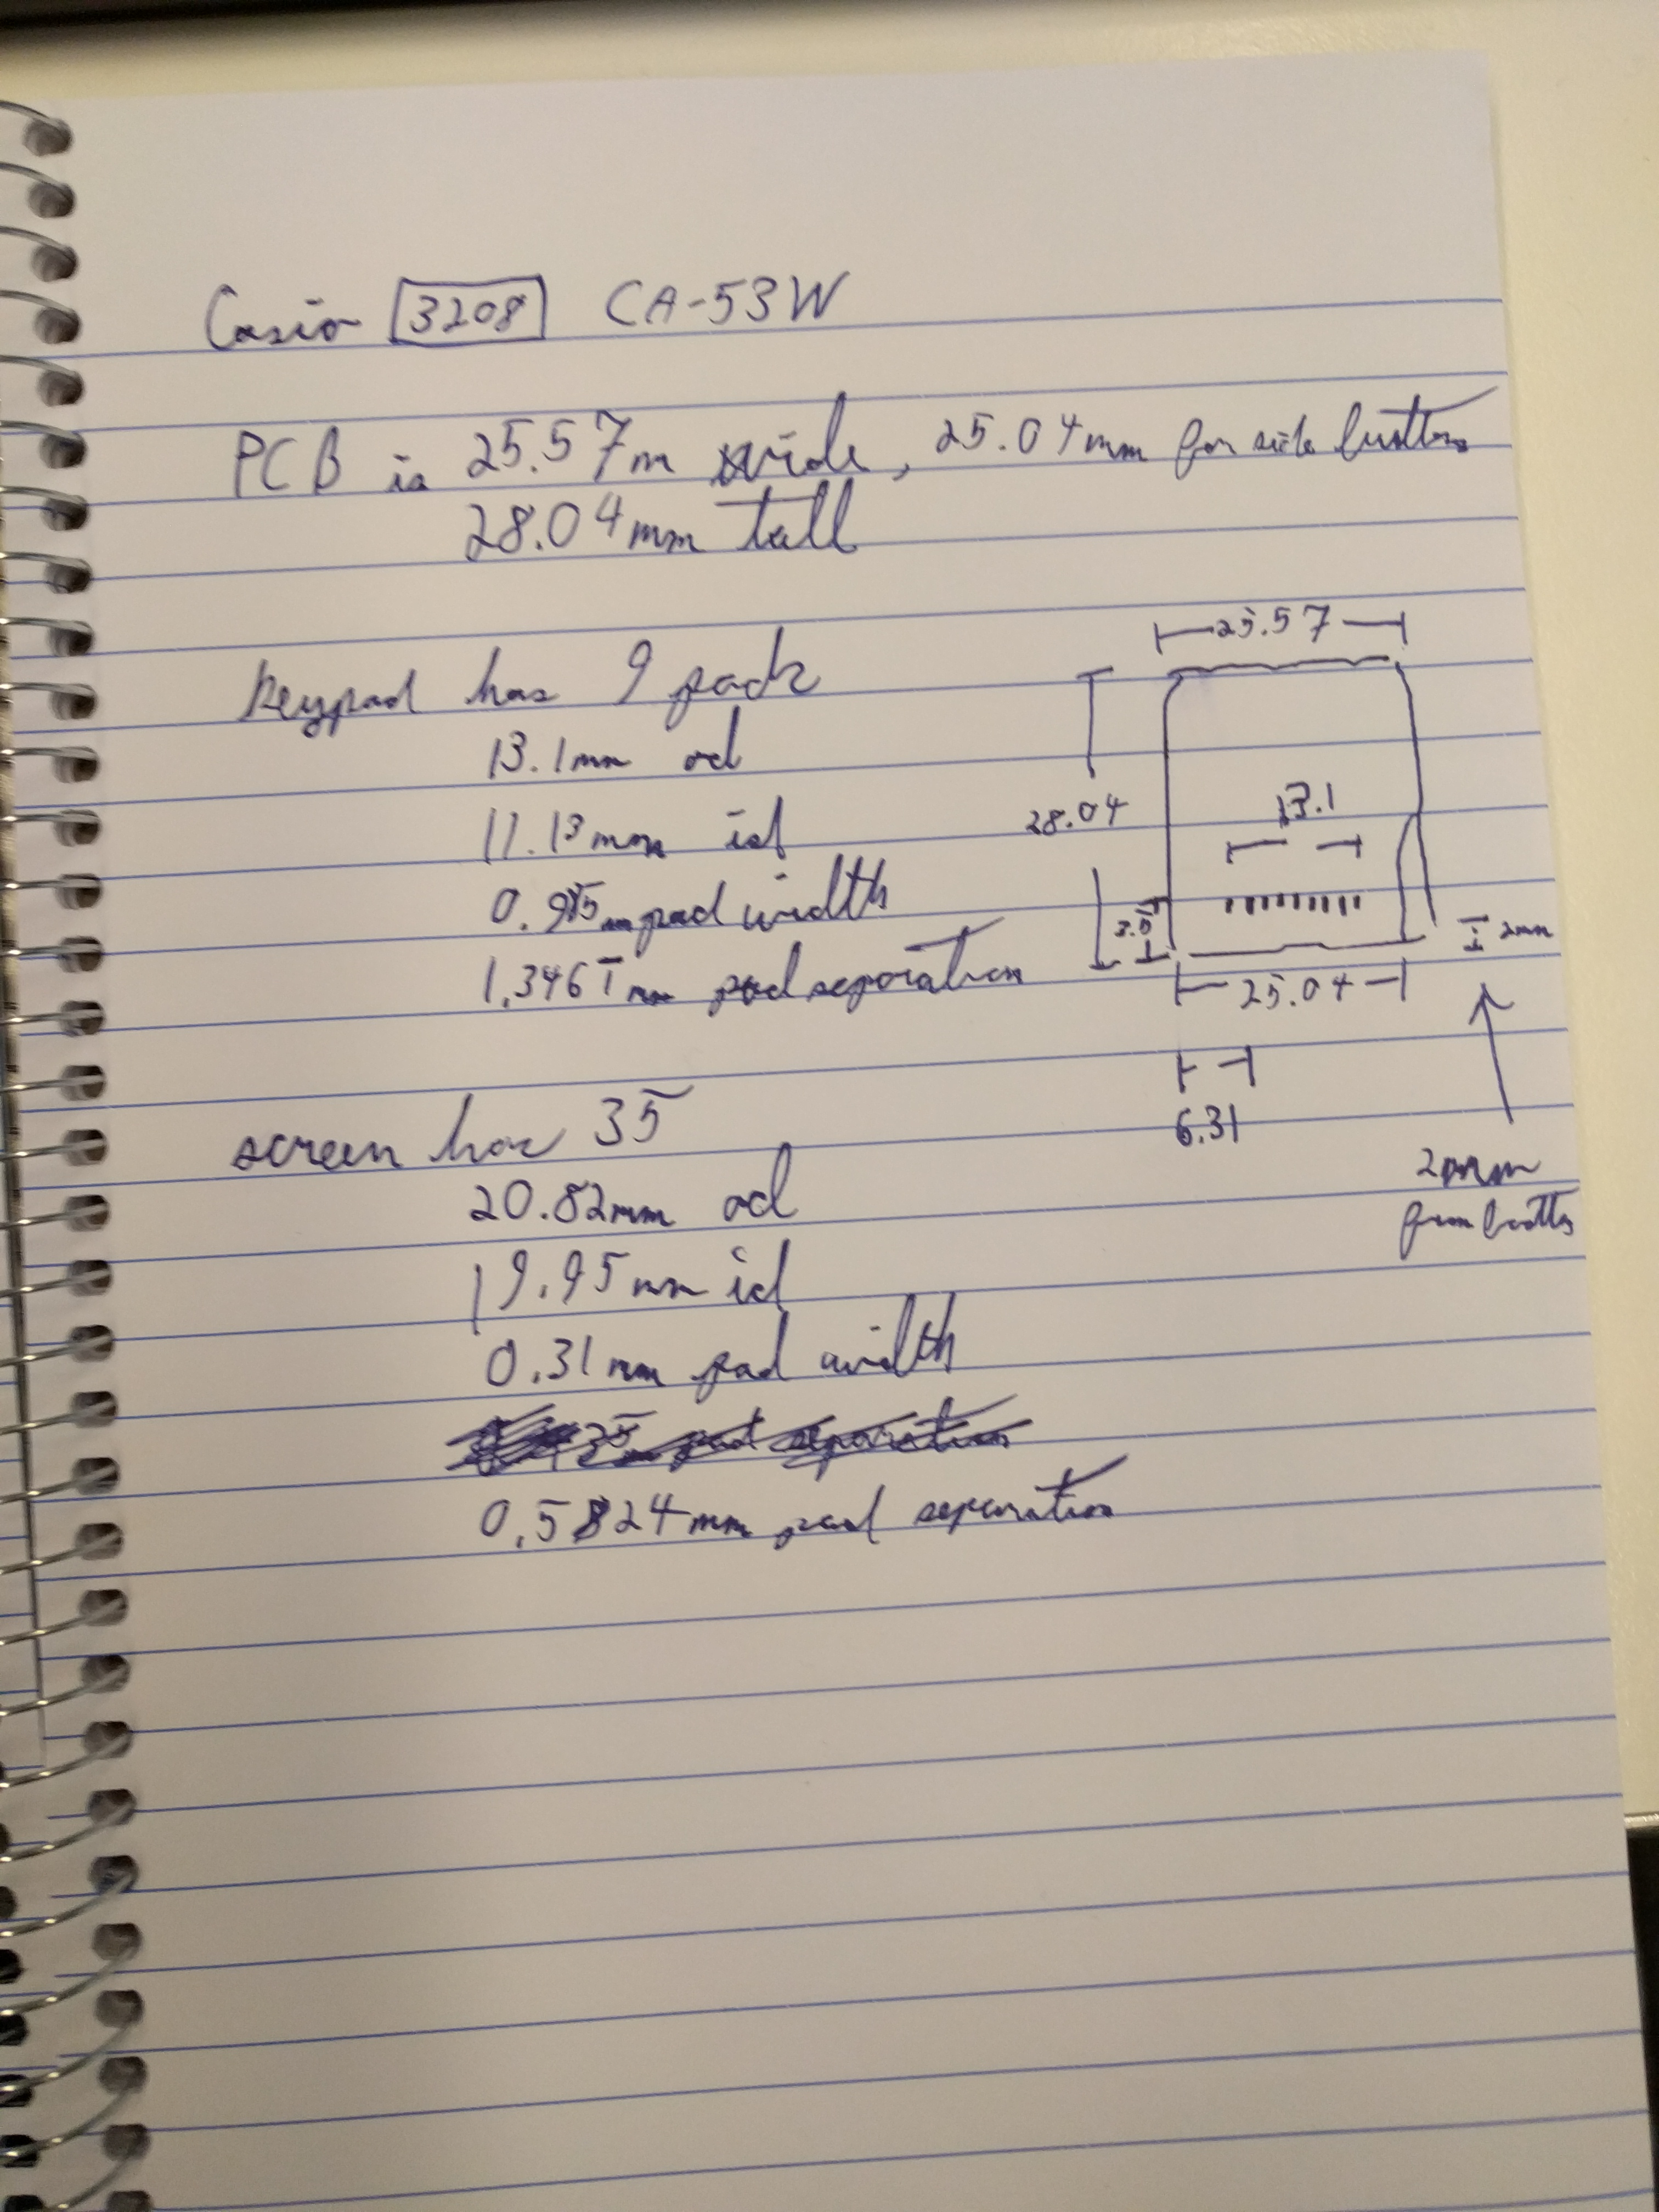 Casio 3208 CA-53W
PCB is 25.57m wide, 25.04mm for side buttons
28.04mm tall
keypad has 9 pads
13.1mm od
11.13mm id
0.95mm pad width
1.3461mm pad separation
screen has 35
20.82mm od
19.95mm id
0.31mm pad width
0.5824mm pad separation
25.57
28.04
13.1
3.5
2mm
25.04
6.31
2mm
from